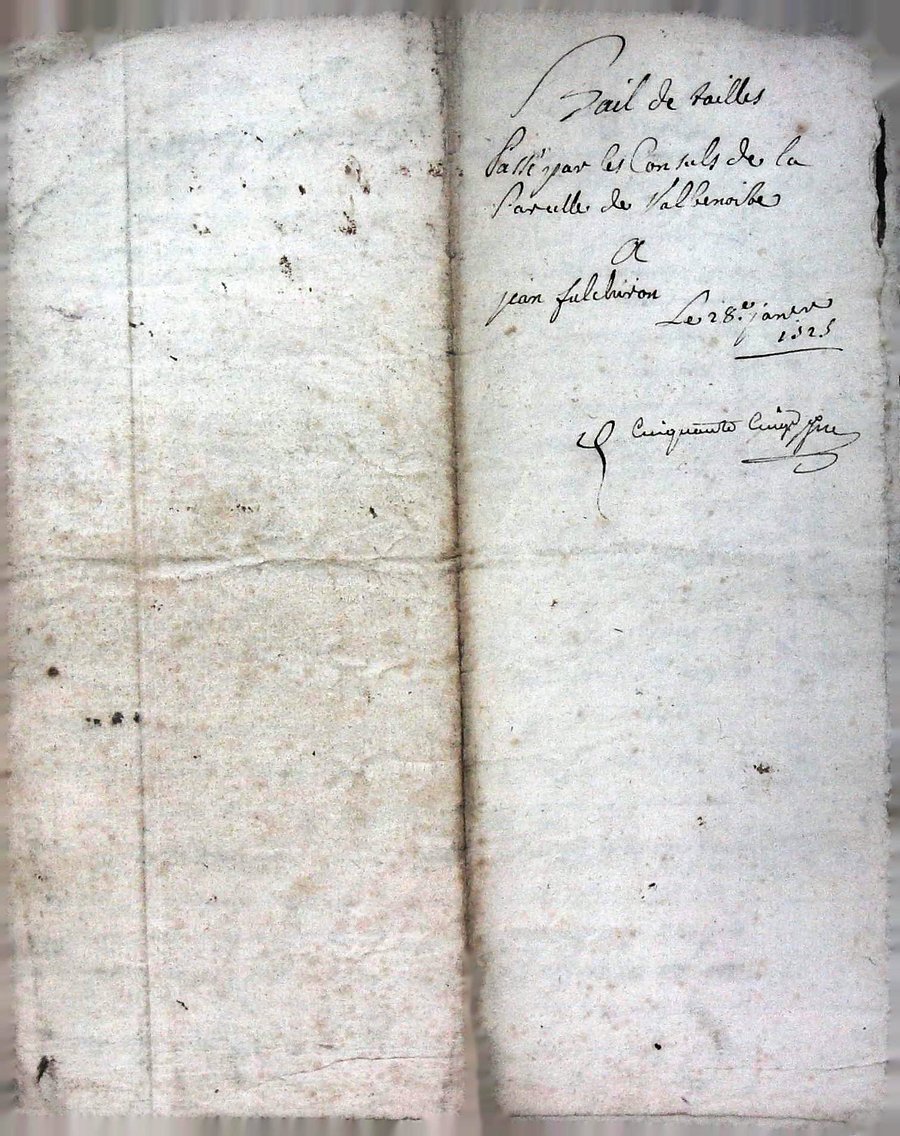 Bail de tailles
Passé par les Consuls de la
Paroisse de Valbenoite
A
jean fulchiron
Le 28.e janvier
Cinquante Cinq